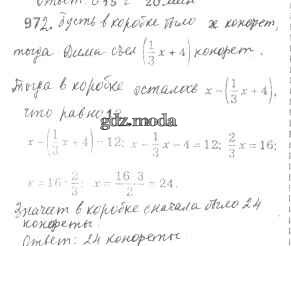 Ответ: 0,35 г 20 мин
972. Пусть в коробке было x конфет,
тогда Дима съел (1/3 x + 4) конфет.
Тогда в коробке осталось x − (1/3 x + 4),
что равно 12
gdz.moda
x − (1/3 x + 4) = 12; x − 1/3 x − 4 = 12; 2/3 x = 16;
x = 16 : 2/3; x = 16·3/2 = 24.
Значит в коробке сначала было 24
конфеты.
Ответ: 24 конфеты